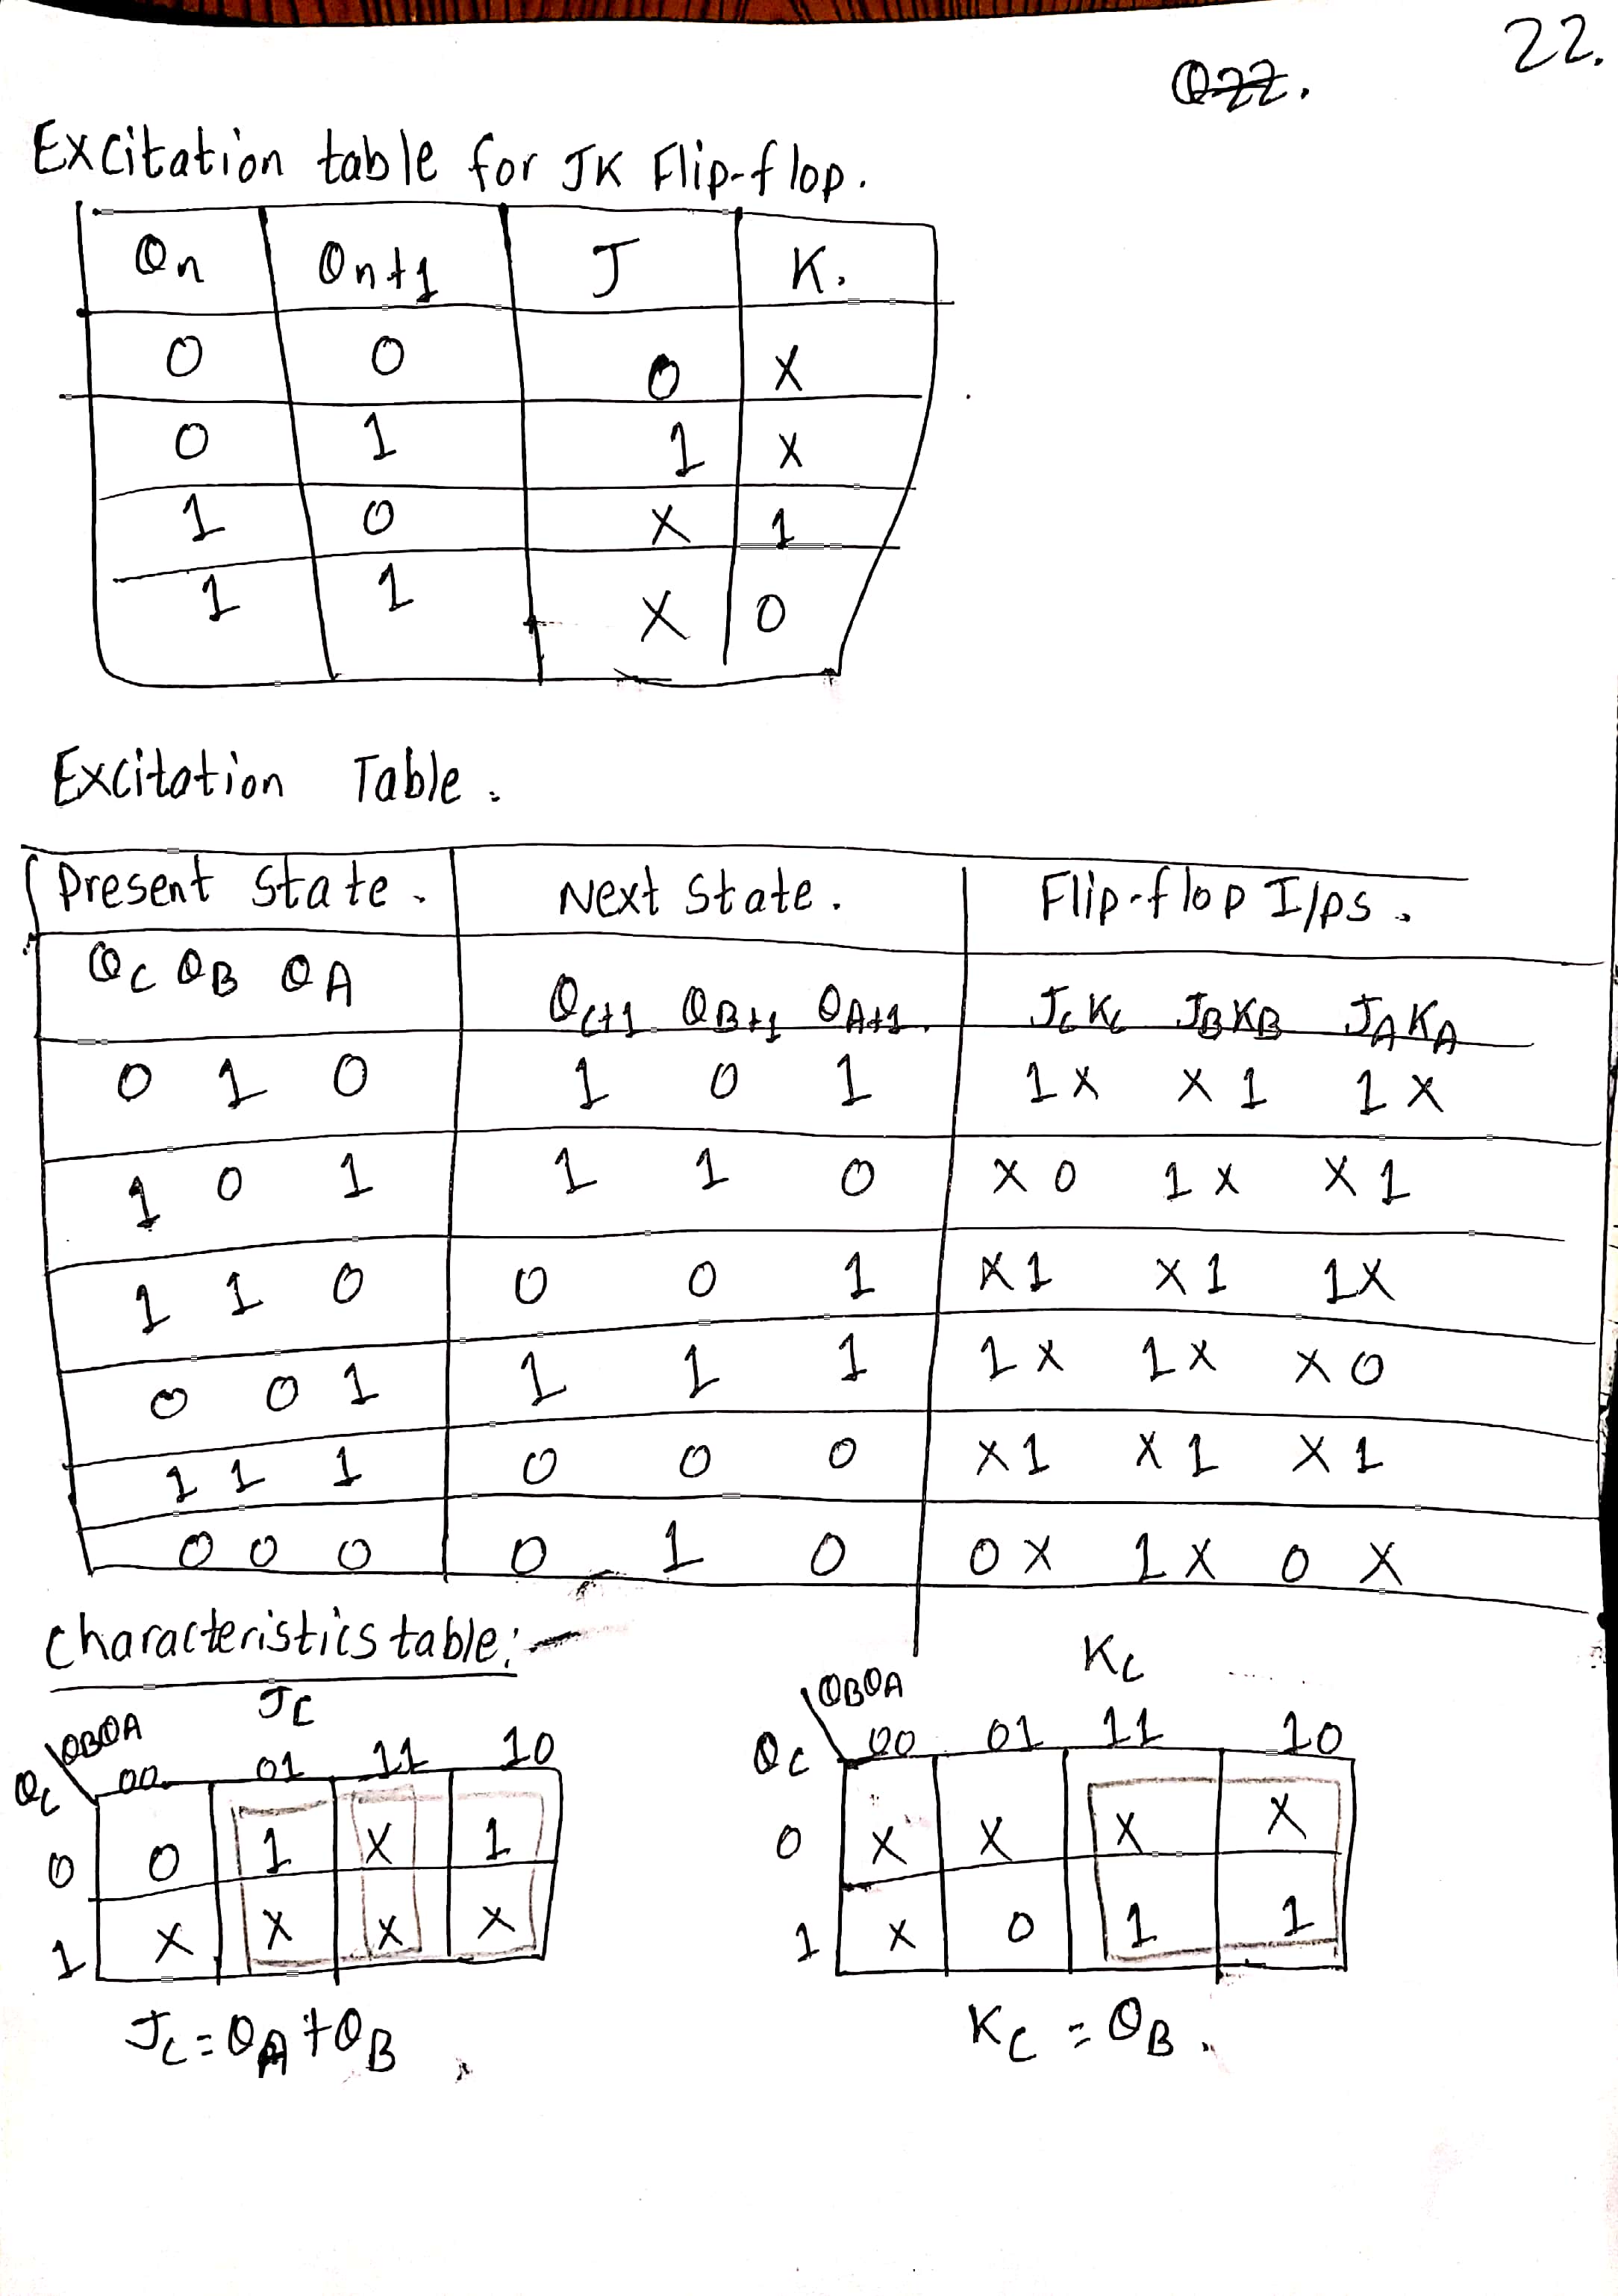 22.
Q22.
Excitation table for JK Flip-flop.
Qn Qn+1 J K.
0 0 0 X
0 1 1 X
1 0 X 1
1 1 X 0
Excitation Table.
Present State. Next State. Flip-flop I/ps.
QC QB QA QC+1 QB+1 QA+1. JC KC JB KB JA KA
0 1 0 1 0 1 1 X X 1 1 X
1 0 1 1 1 0 X 0 1 X X 1
1 1 0 0 0 1 X 1 X 1 1 X
0 0 1 1 1 1 1 X 1 X X 0
1 1 1 0 0 0 X 1 X 1 X 1
0 0 0 0 1 0 0 X 1 X 0 X
Characteristics table:-
JC
QBQA
QC 00 01 11 10
0 0 1 X 1
1 X X X X
JC = QA + QB
KC
QBQA
QC 00 01 11 10
0 X X X X
1 X 0 1 1
KC = QB.